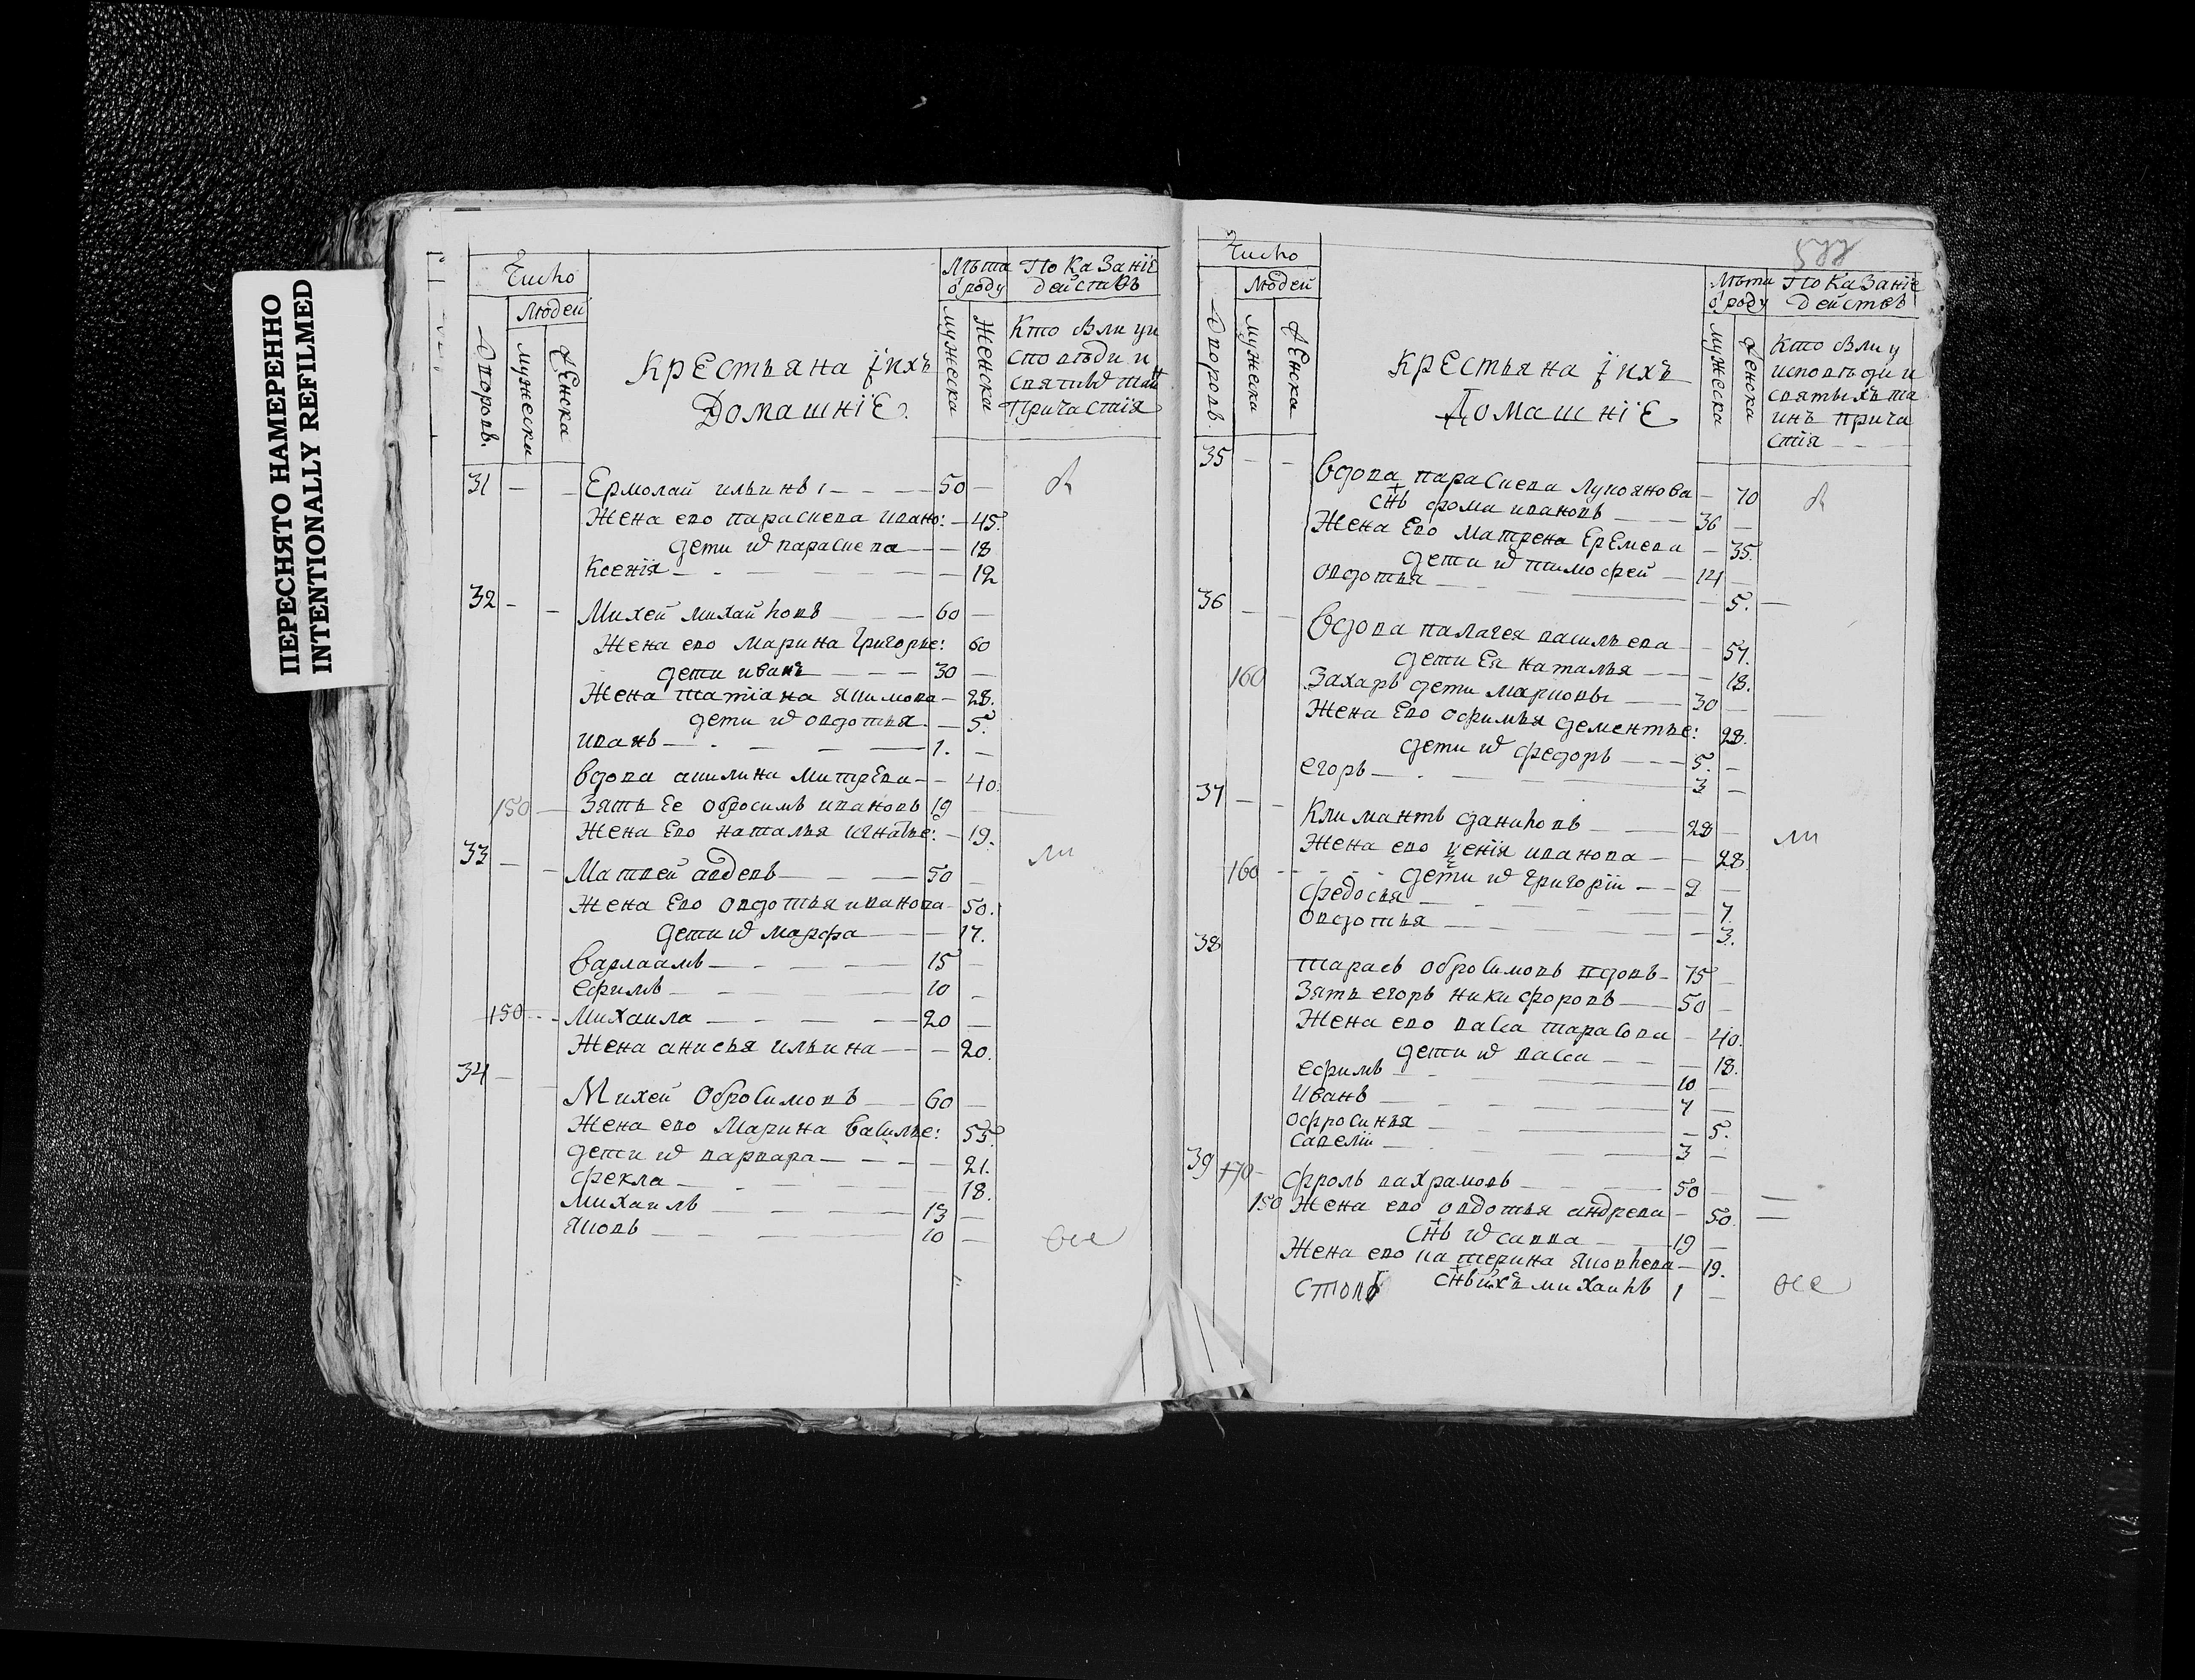 ПЕРЕСНЯТО НАМЕРЕННО
INTENTIONALLY REFILMED
Число
Людей
Дворовъ.
мужеска
Женска
крестьяна їихъ
Домашнїе.
Лѣта
ѿроду
мужеска
Женска
Показанїе
действъ
Кто былъ уи
споведи и
святыхъ таи
причастия
31 Ермолаи ильинъ 50
Жена ево параскева ивано: 45.
дети ѿ параскева 18
Ксенїя 12
32 Михеи михайловъ 60
Жена ево марина григорье: 60
дети иванъ 30
Жена татїана якимова 28.
дети ѿ овдотья 5.
иванъ 1.
вдова акилина митрева 40.
150 Зять ее обросимъ ивановъ 19
Жена ево наталья игнатье: 19.
33 Матвей авдевъ 50
Жена ево овдотья иванова 50.
дети ѿ марфа 17.
варлаамъ 15
ефимъ 10
150 Михаила 20
Жена анисья ильина 20.
34 Михеи обросимовъ 60
Жена ево марина василье: 55.
дети ѿ варвара 21.
фекла 18.
михаилъ 13
яковъ 10
все
577
Число
Людей
Дворовъ.
мужеска
Женска
крестьяна їихъ
Домашнїе
Лѣта
ѿроду
мужеска
Женска
Показанїе
действъ
Кто былъ у
исповѣди и
святыхъ та
инъ прича
стїя
35 вдова параскева лукоянова 70
снъ фома ивановъ 36
Жена ево матрена еремева 35.
дети ѿ тимофей 14
овдотья 5.
36 вдова палагея васильева 57.
дети ея наталья 18.
160 Захаръ дети марковы 30
Жена ево офимья дементье: 28.
дети ѿ федоръ 5.
егоръ 3
37 климантъ даниловъ 28
Жена ево ѯенїя иванова 28.
160 дети ѿ григорїи 9
федосья 7.
овдотья 3.
38 тарасъ обросимовъ вдовъ 75
Зять егоръ никифоровъ 50
Жена ево васса тарасова 40.
дети ѿ васса 18.
ефимъ 10
иванъ 7
офросинья 5.
савелїи 3
39 170 фролъ вахрамовъ 50
150 Жена ево овдотья андрева 50.
снъ ѿ савва 19
Жена ево катерина яковлева 19.
столб снъ ихъ михаилъ 1
все